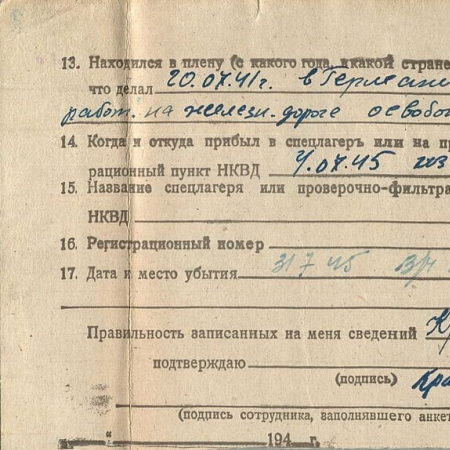 13. Находился в плену (с какого года, в какой стране
что делал 20.07.41г. в Германи
работ. на железн. дороге освобо
14. Когда и откуда прибыл в спецлагерь или на пр
рационный пункт НКВД 4.07.45 из
15. Название спецлагеря или проверочно-фильтра
НКВД
16. Регистрационный номер
17. Дата и место убытия 31 7 45 в/ч
Правильность записанных на меня сведений Кр
подтверждаю
(подпись) Кра
(подпись сотрудника, заполнявшего анкет
„ “ 194 г.